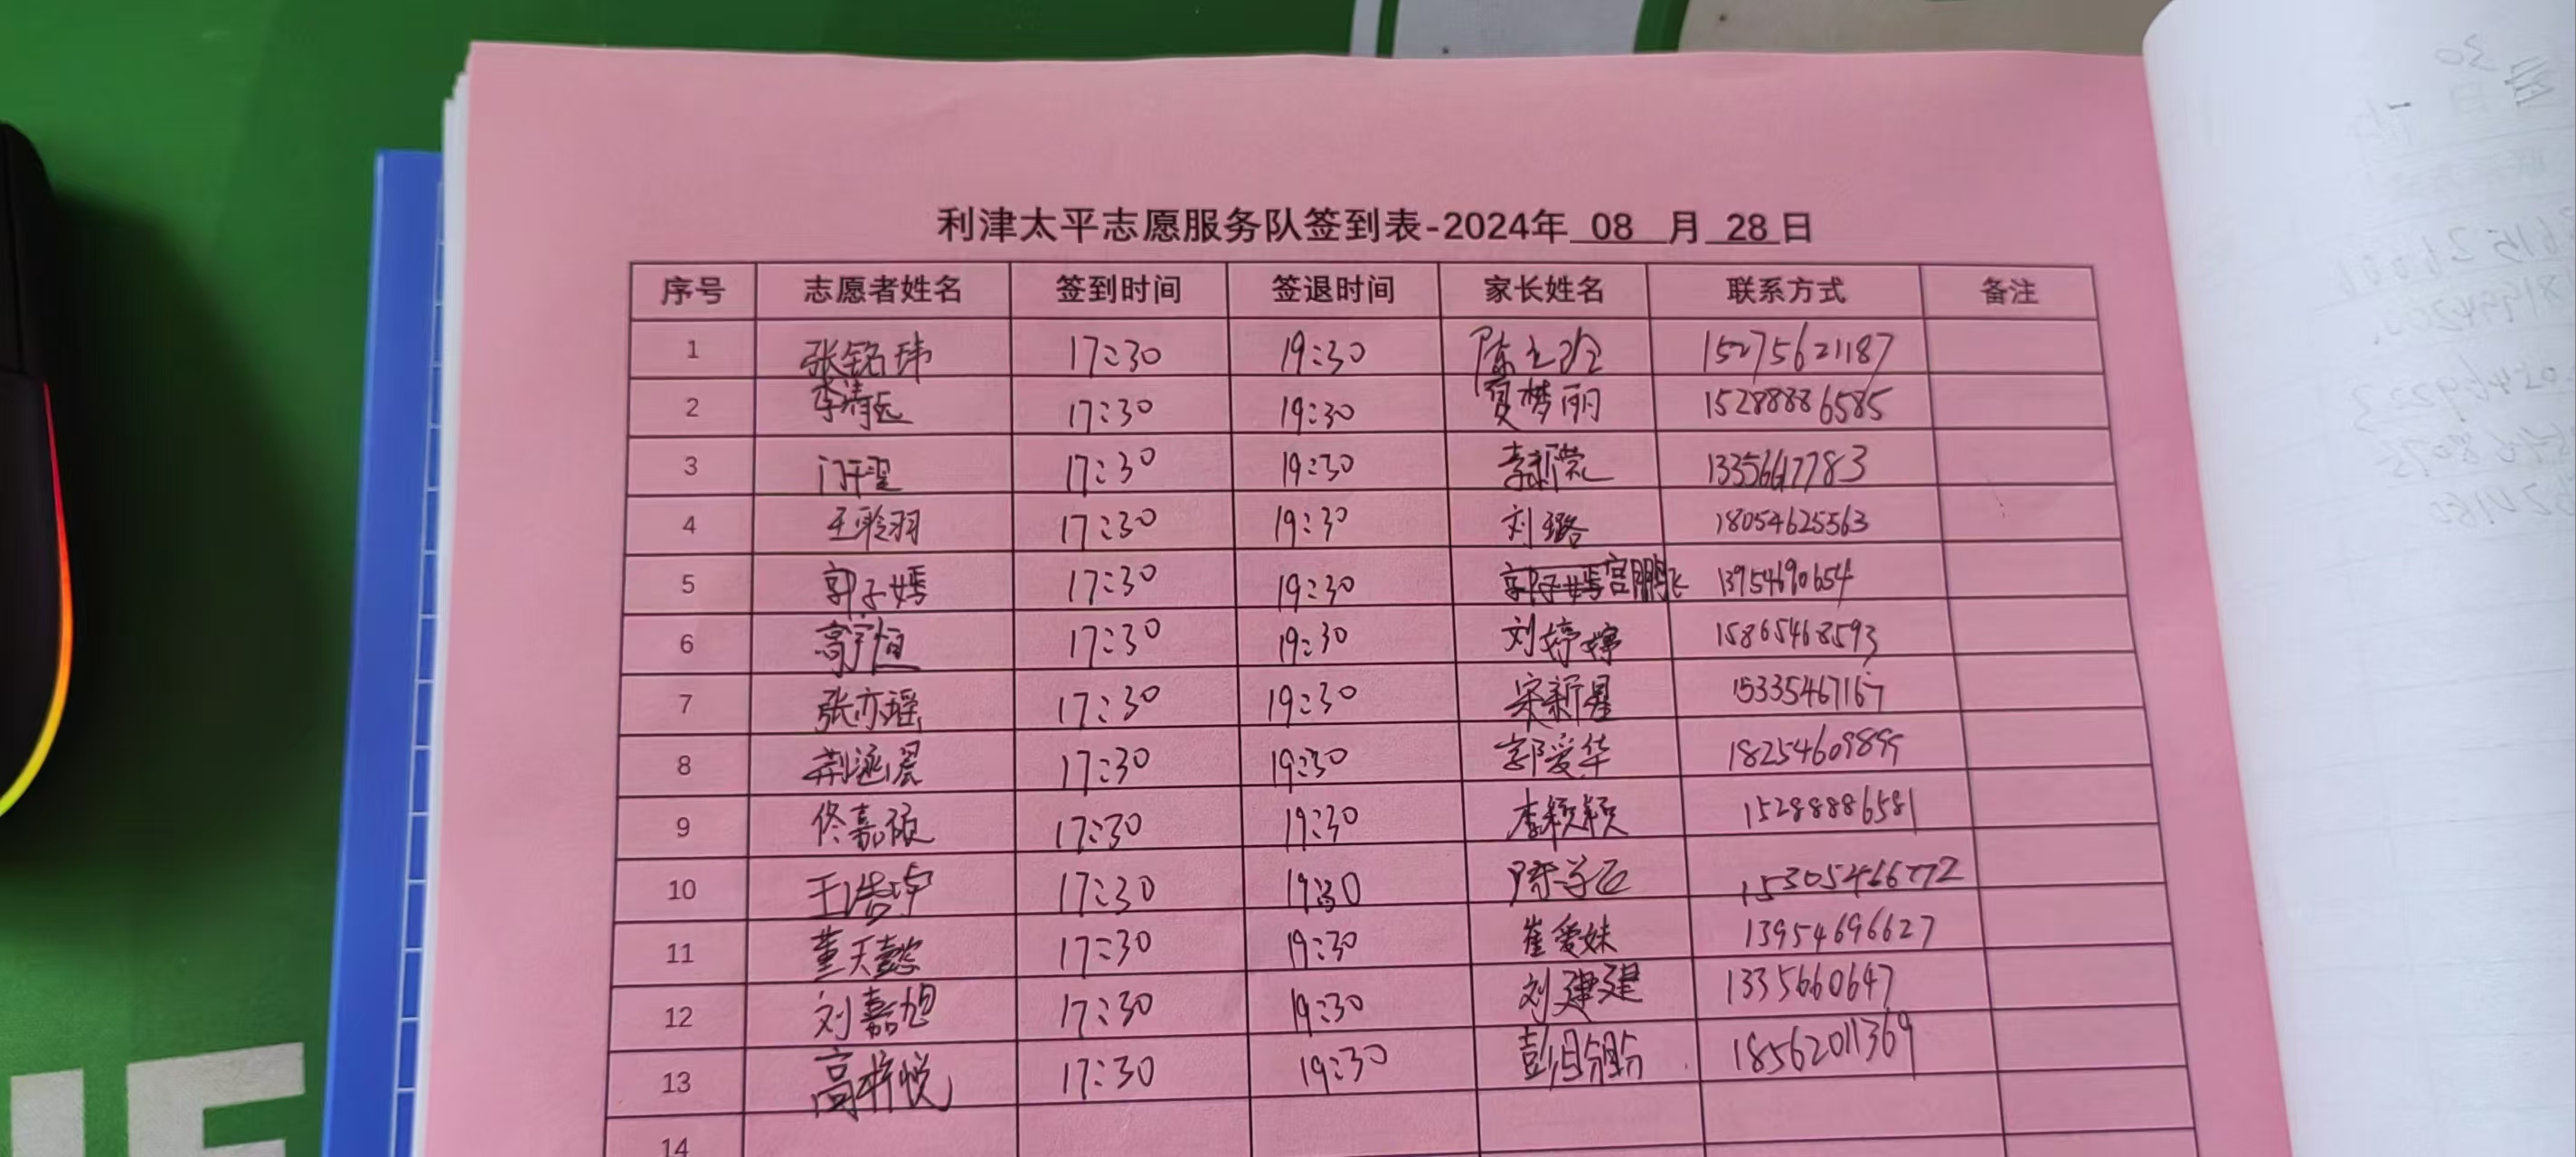 利津太平志愿服务队签到表-2024年 08 月 28 日
序号 志愿者姓名 签到时间 签退时间 家长姓名 联系方式 备注
1 张铭玮 17:30 19:30 陈 15275621187
2 李清远 17:30 19:30 夏梦丽 15288886585
3 17:30 19:30 李新荒 13356647783
4 王聆羽 17:30 19:30 刘璐 18054625563
5 郭子嫣 17:30 19:30 郭子嫣宫鹏飞 13954690654
6 高宇恒 17:30 19:30 刘婷婷 15865468593
7 张亦瑶 17:30 19:30 宋新星 15335467167
8 荆涵宸 17:30 19:30 郭爱华 18254609899
9 佟嘉硕 17:30 19:30 李颖颖 15288886581
10 王浩宇 17:30 19:30 15305466772
11 董天懿 17:30 19:30 崔爱妹 13954696627
12 刘嘉旭 17:30 19:30 刘建建 1335660647
13 高梓悦 17:30 19:30 彭 18562011369
14